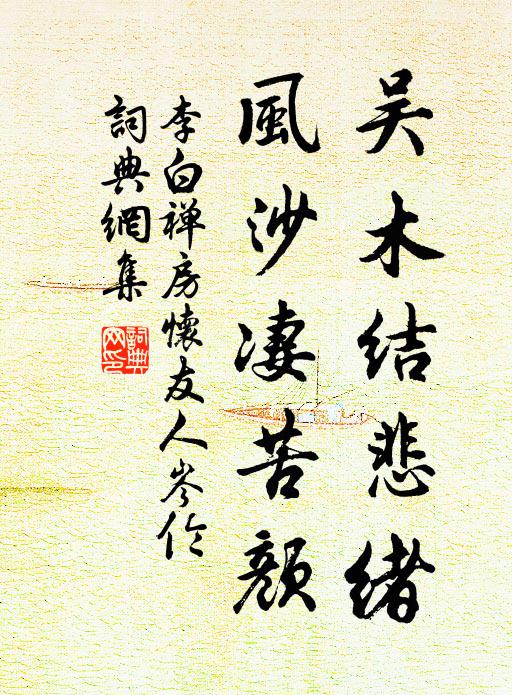 吴木結悲緒
風沙凄苦顏
李白禅房懷友人岑倫
詞典網集
詞典网印